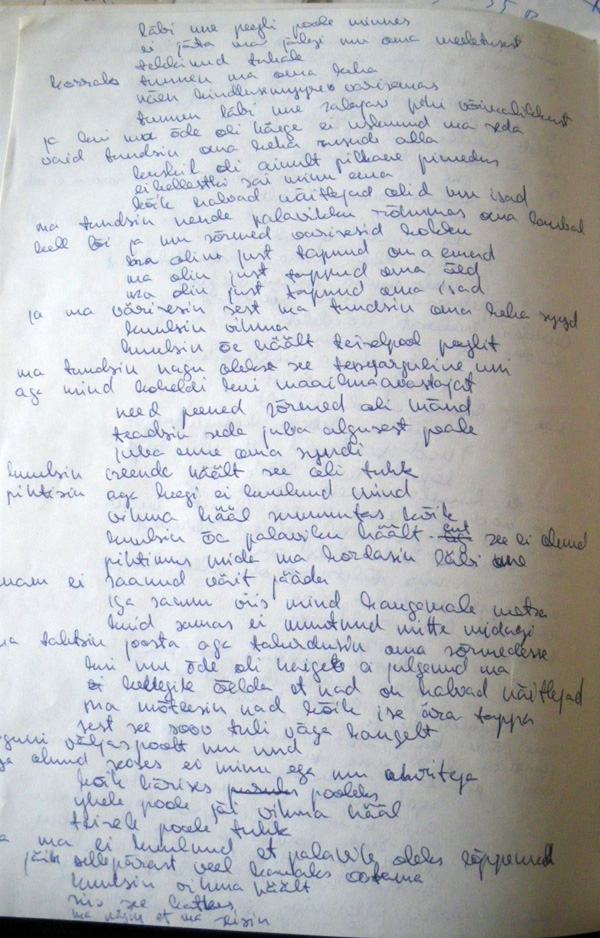 läbi une peegli poole minnes
ei jäta ma jälgi mu oma meeletusest
tekkinud tuhale
korraks tunnen ma oma keha
näen värisemas
tunnen läbi une
ja kui mu õde oli haige ei uskunud ma seda
vaid tundsin oma keha alla
kuskil oli ainult pilkane pimedus
ei kellestki sai minu ema
kõik halvad näitlejad olid mu isad
ma tundsin nende palavikku rõhumas oma
kell lõi ja mu sõrmed värisesid
ma olin just tapnud oma emad
ma olin just tappnud oma õed
ma olin just tapnud oma isad
ja ma värisesin sest ma tundsin oma keha syyd
kuulsin vihma
kuulsin öö häält teiselpool peeglit
ma tundsin nagu oleks see uni
aga mind koheldi kui maailmaavastajat
need peened sõrmed oli mänd
teadsin seda juba algusest peale
juba enne oma syndi
kuulsin iseenda häält see oli tuhk
pihtisin aga keegi ei kuulnud mind
vihma hääl summutas kõik
kuulsin öö palaviku häält see ei olnud
pihtimus mida ma kordasin läbi une
enam ei saanud värit jääda
iga samm viis mind kaugemale metsa
kuid samas ei muutnud mitte midagi
ma tahtsin joosta aga takerdusin oma sõrmedesse
kui mu õde oli haige ei julgenud ma
kellegile öelda et nad on halvad näitlejad
ma mõtlesin nad kõik ise ära tappa
sest see soov tuli väga kaugelt
väljaspoolt mu und
olnud seoses ei minu ega mu
kõik kärises pooleks
yhele poole jäi vihma hääl
teisele poole tuhk
ma ei kuulnud et palavik oleks lõppenud
jäin sellepärast veel kauaks ootama
kuulsin vihma häält
siis see katkes
ma nägin et ma seisin